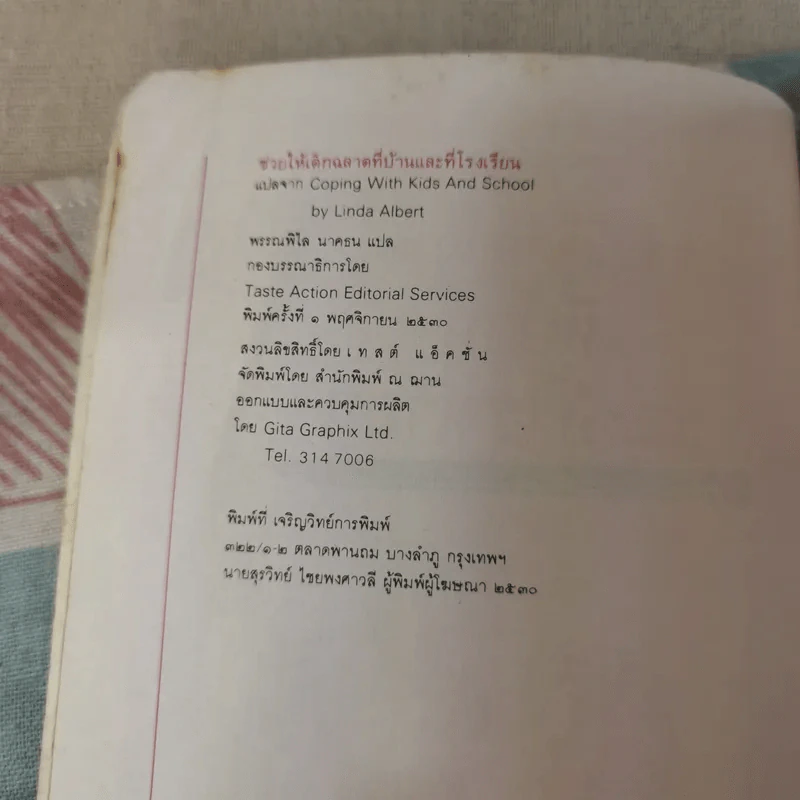 ช่วยให้เด็กฉลาดที่บ้านและที่โรงเรียน
แปลจาก Coping With Kids And School
by Linda Albert
พรรณพิไล นาคธน แปล
กองบรรณาธิการโดย
Taste Action Editorial Services
พิมพ์ครั้งที่ ๑ พฤศจิกายน ๒๕๓๐
สงวนลิขสิทธิ์โดย เ ท ส ต์ แ อ็ ค ชั่ น
จัดพิมพ์โดย สำนักพิมพ์ ณ ฌาน
ออกแบบและควบคุมการผลิต
โดย Gita Graphix Ltd.
Tel. 314 7006
พิมพ์ที่ เจริญวิทย์การพิมพ์
๓๒๒/๑-๒ ตลาดพานถม บางลำภู กรุงเทพฯ
นายสุรวิทย์ ไชยพงศาวลี ผู้พิมพ์ผู้โฆษณา ๒๕๓๐